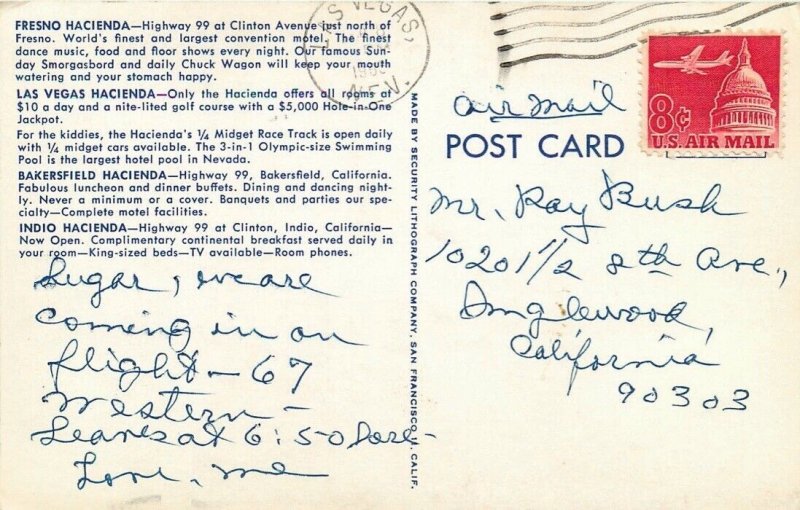 FRESNO HACIENDA—Highway 99 at Clinton Avenue just north of
Fresno. World's finest and largest convention motel. The finest
dance music, food and floor shows every night. Our famous Sun-
day Smorgasbord and daily Chuck Wagon will keep your mouth
watering and your stomach happy.
LAS VEGAS HACIENDA—Only the Hacienda offers all rooms at
$10 a day and a nite-lited golf course with a $5,000 Hole-in-One
Jackpot.
For the kiddies, the Hacienda's ¼ Midget Race Track is open daily
with ¼ midget cars available. The 3-in-1 Olympic-size Swimming
Pool is the largest hotel pool in Nevada.
BAKERSFIELD HACIENDA—Highway 99, Bakersfield, California.
Fabulous luncheon and dinner buffets. Dining and dancing night-
ly. Never a minimum or a cover. Banquets and parties our spe-
cialty—Complete motel facilities.
INDIO HACIENDA—Highway 99 at Clinton, Indio, California—
Now Open. Complimentary continental breakfast served daily in
your room—King-sized beds—TV available—Room phones.
Sugar, we are
coming in on
flight - 67
Western -
Leaves at 6:50
Love, me
MADE BY SECURITY LITHOGRAPH COMPANY, SAN FRANCISCO 11, CALIF.
LAS VEGAS,
NEV.
air mail
POST CARD
8¢
U.S. AIR MAIL
Mr. Ray Bush
10201 1/2 8th Ave.,
Inglewood,
California
90303